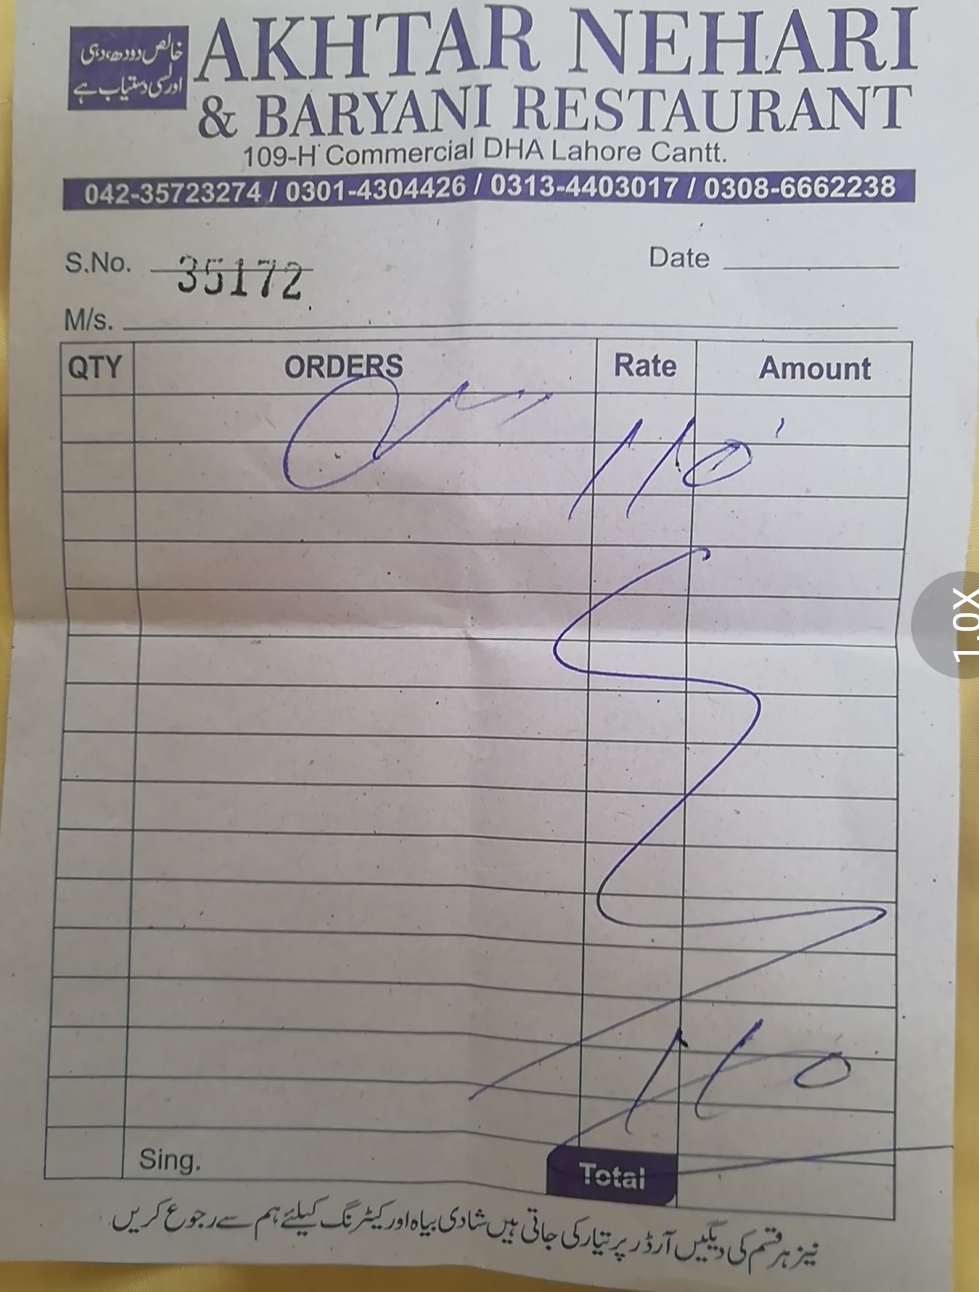 خالص دودھ، دہی
اور لسی دستیاب ہے
AKHTAR NEHARI
& BARYANI RESTAURANT
109-H Commercial DHA Lahore Cantt.
042-35723274 / 0301-4304426 / 0313-4403017 / 0308-6662238
S.No. 35172 Date
M/s.
QTY ORDERS Rate Amount
110
110
Sing. Total
نیز ہر قسم کی دیگیں آرڈر پر تیار کی جاتی ہیں شادی بیاہ اور کیٹرنگ کیلئے ہم سے رجوع کریں
1.0X